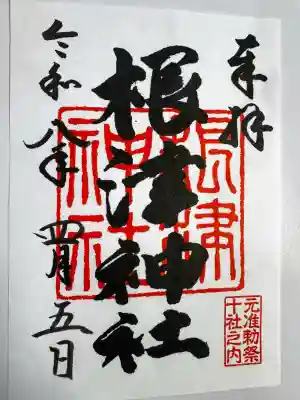 奉拝
元准勅祭
十社之内
根津神社
根津
神社
令和八年四月五日